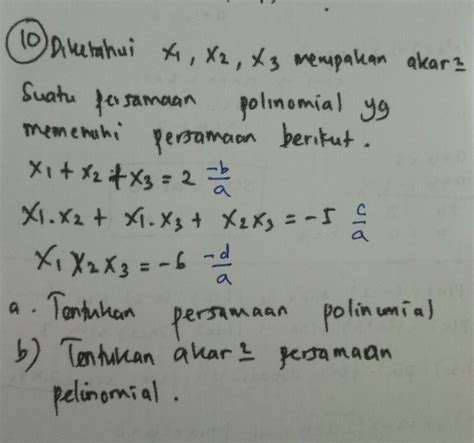 (10) Diketahui x1, x2, x3 merupakan akar2
Suatu persamaan polinomial yg
memenuhi persamaan berikut.
x1 + x2 + x3 = 2 -b/a
x1.x2 + x1.x3 + x2x3 = -5 c/a
x1 x2 x3 = -6 -d/a
a. Tentukan persamaan polinumial
b) Tentukan akar2 persamaan
pelinomial.